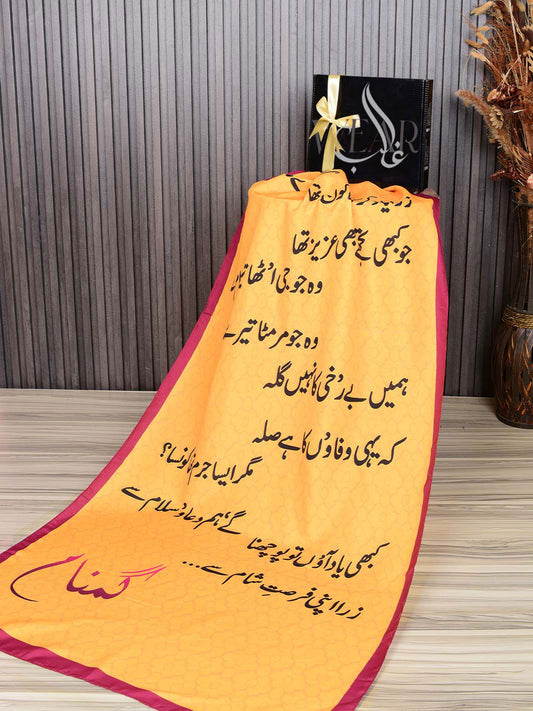 WEAR
غالب
تھا
جو کبھی کبھی عزیز تھا
وہ جو جی اُٹھا
وہ جو مر مٹا تیرے
ہمیں بے رُخی کا نہیں گلہ
کہ یہی وفاوٗں کا ہے صلہ
مگر ایسا جرم تھا کونسا؟
گئے ہم دعا و سلام سے
کبھی یاد آوٗں تو پوچھنا
ذرا اپنی فرصتِ شام سے...
گمنام